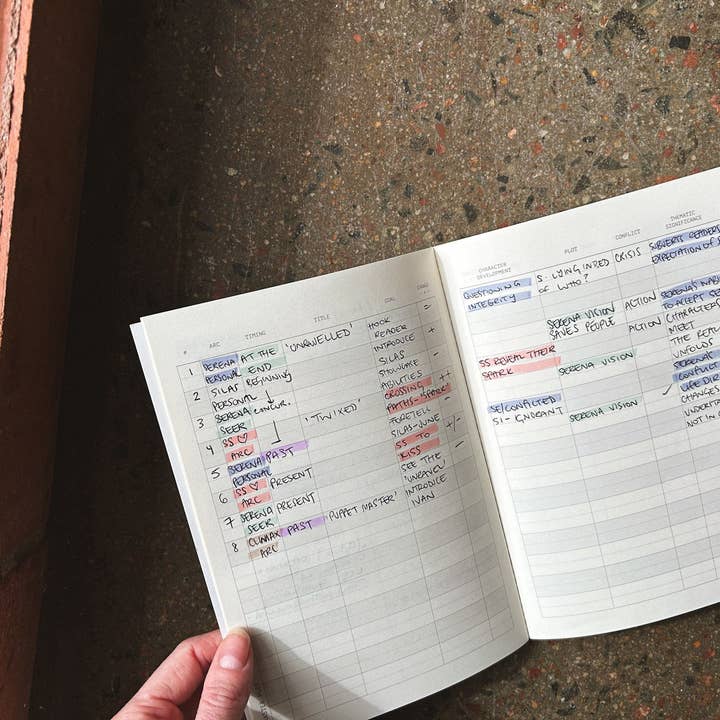 # ARC TIMING TITLE GOAL
1 SERENA AT THE 'UNRAVELLED' HOOK =
PERSONAL END READER
2 SILAS BEGINNING INTRODUCE +
PERSONAL SILAS
3 SERENA CONCUR. SHOWCASE -
SEEK ABILITIES
4 SS ♡ 'TWIXED' CROSSING ++
ARC PATHS-'SPARK'
5 SERENA PAST FORETELL -
PERSONAL SILAS-JUNE
6 SS ♡ PRESENT SS TO +/-
ARC KISS
7 SERENA PRESENT SEE THE -
SEEK 'UNRAVEL'
8 CLIMAX PAST 'PUPPET MASTER' INTRODUCE
ARC IVAN
CHARACTER DEVELOPMENT PLOT CONFLICT THEMATIC SIGNIFICANCE
QUESTIONING S. LYING IN BED CRISIS SUBVERTS READERS
INTEGRITY OF WHO? EXPECTATION OF
SERENA VISION ACTION SERENA'S
SAVES PEOPLE TO ACCEPT
ACTION CHARACTERS
MEET
SS REVEAL THEIR SERENA VISION THE
SPARK UNFOLDS
SERENA
CONFLICT
SELFCONFLICTED SERENA VISION ✓ LIFE
CHANGES
NOT IN